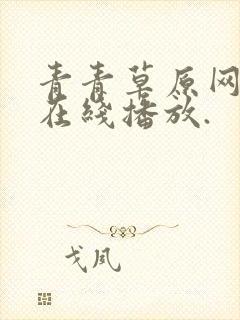 青青草原网
在线播放.
戈凤